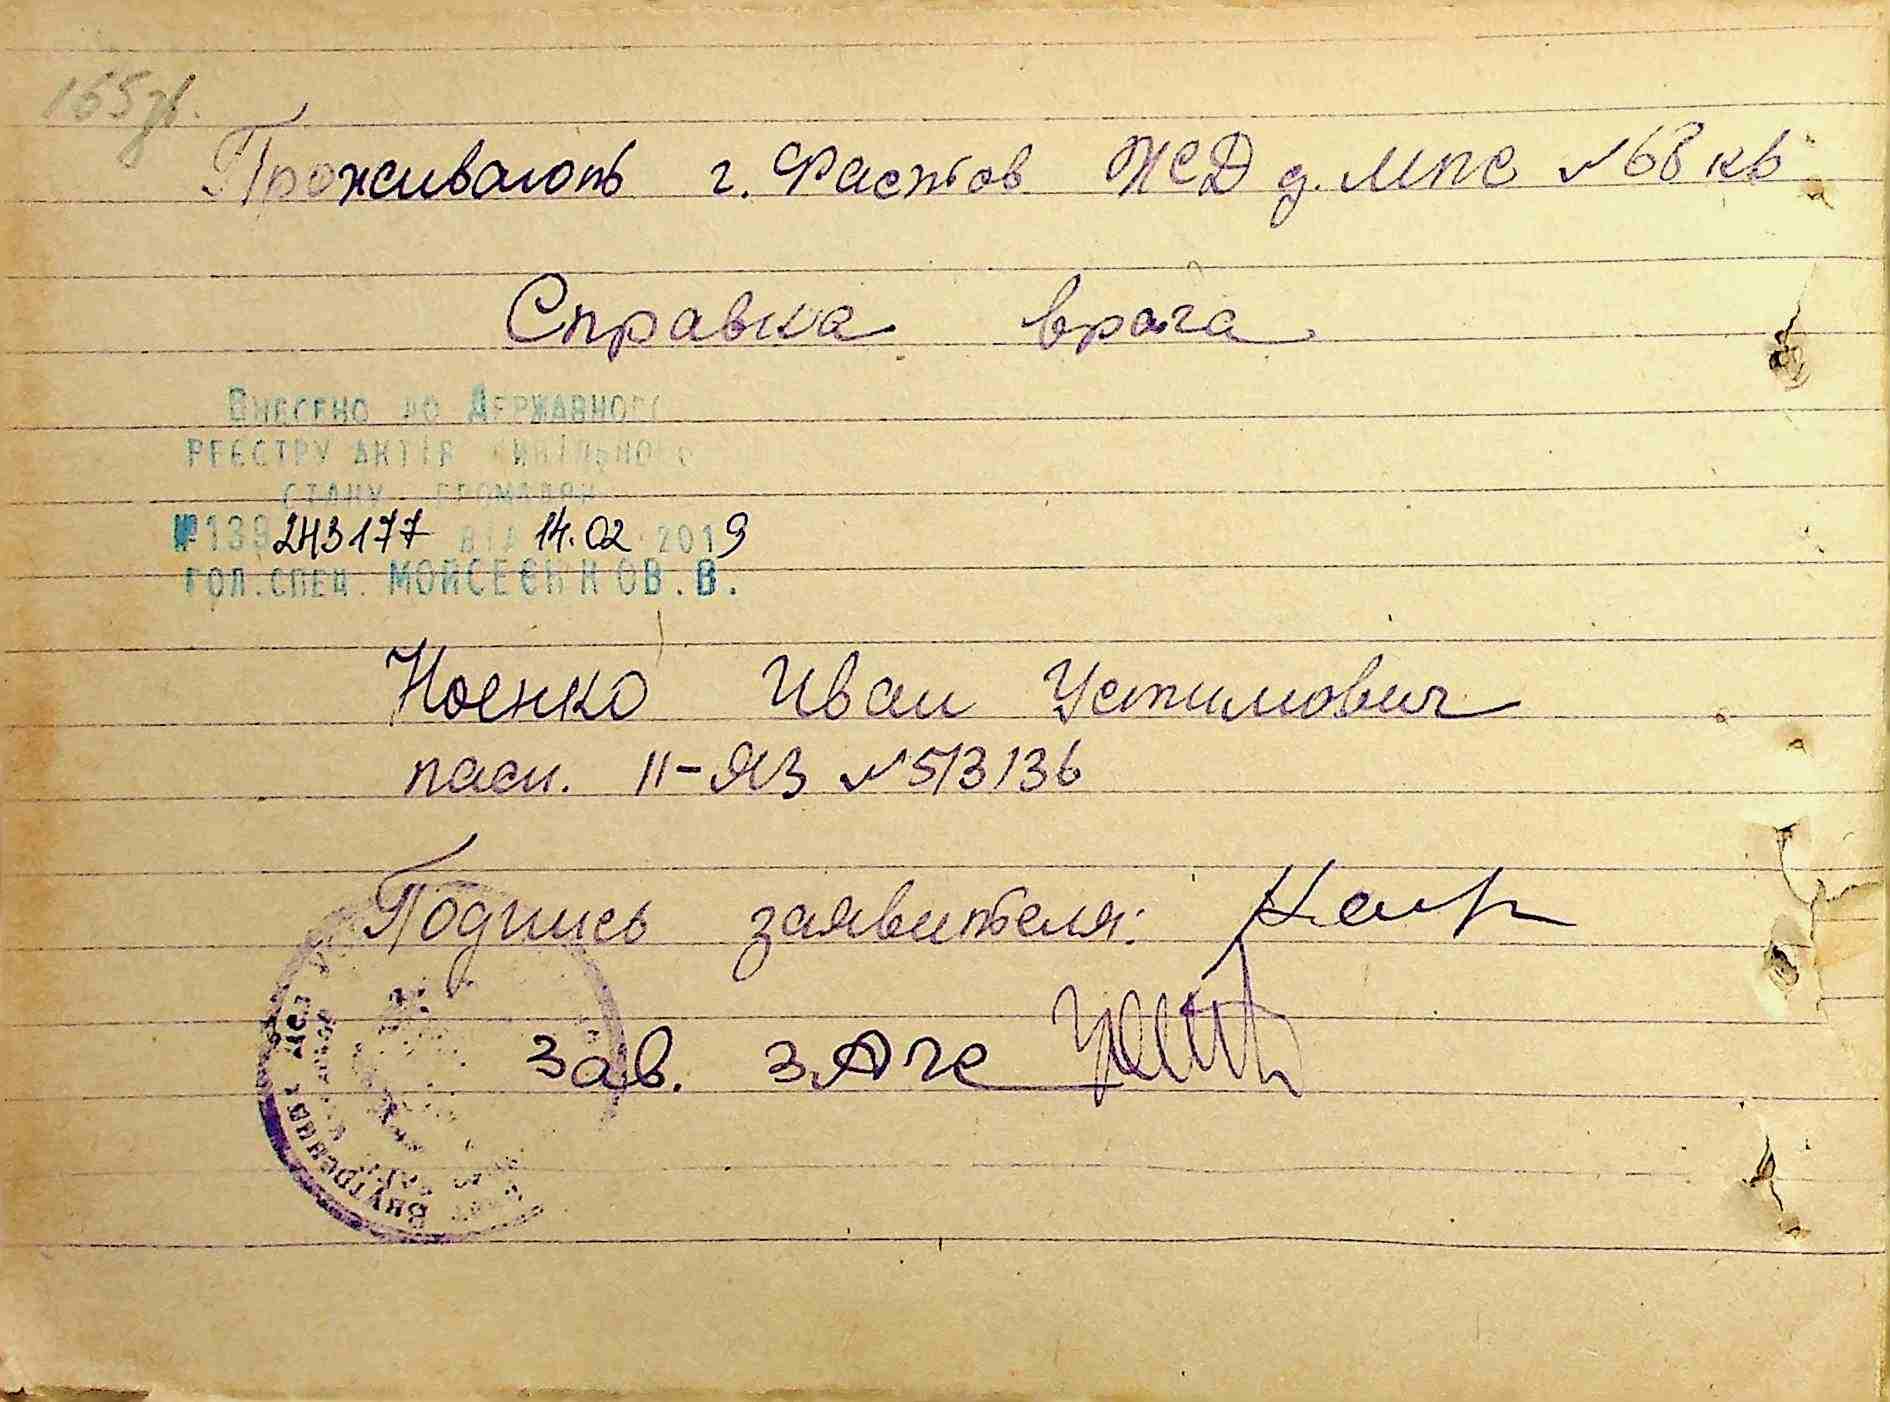 165 зв.
Проживают г. Фастов ЖД д. МПС №68 кв
Справка врача
Внесено до Державного
реєстру актів цивільного
стану громадян
№139 243177 від 14.02 2019
гол. спец. Мойсеєнко В. В.
Ноенко Иван Устимович
пасп. II-ЯЗ №513136
Подпись заявителя:
Зав. ЗАГС
Внутренних дел